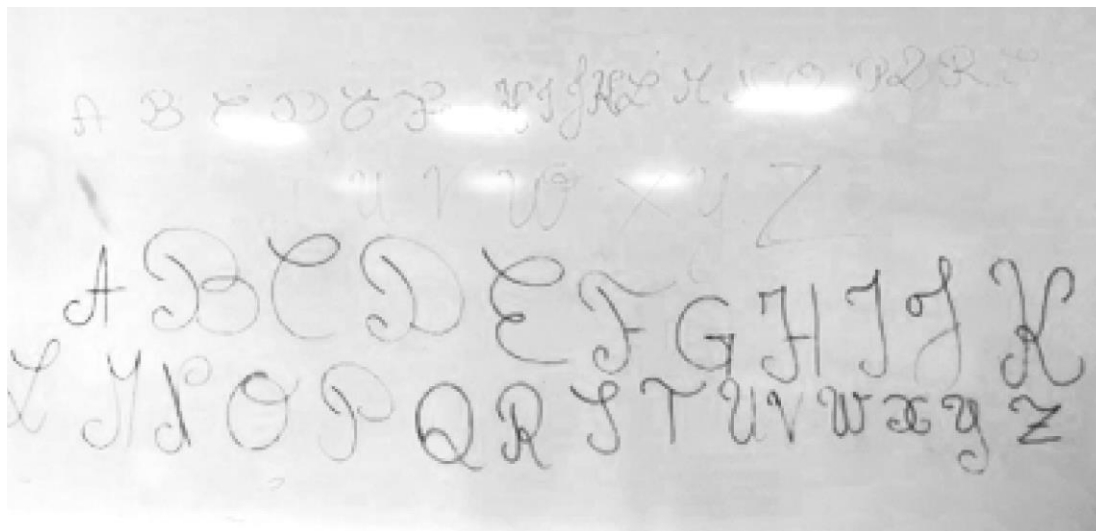 A B C D E F H I J K L M N O P Q R
U V W X Y Z
A B C D E F G H I J K
L M N O P Q R S T U V W X Y Z